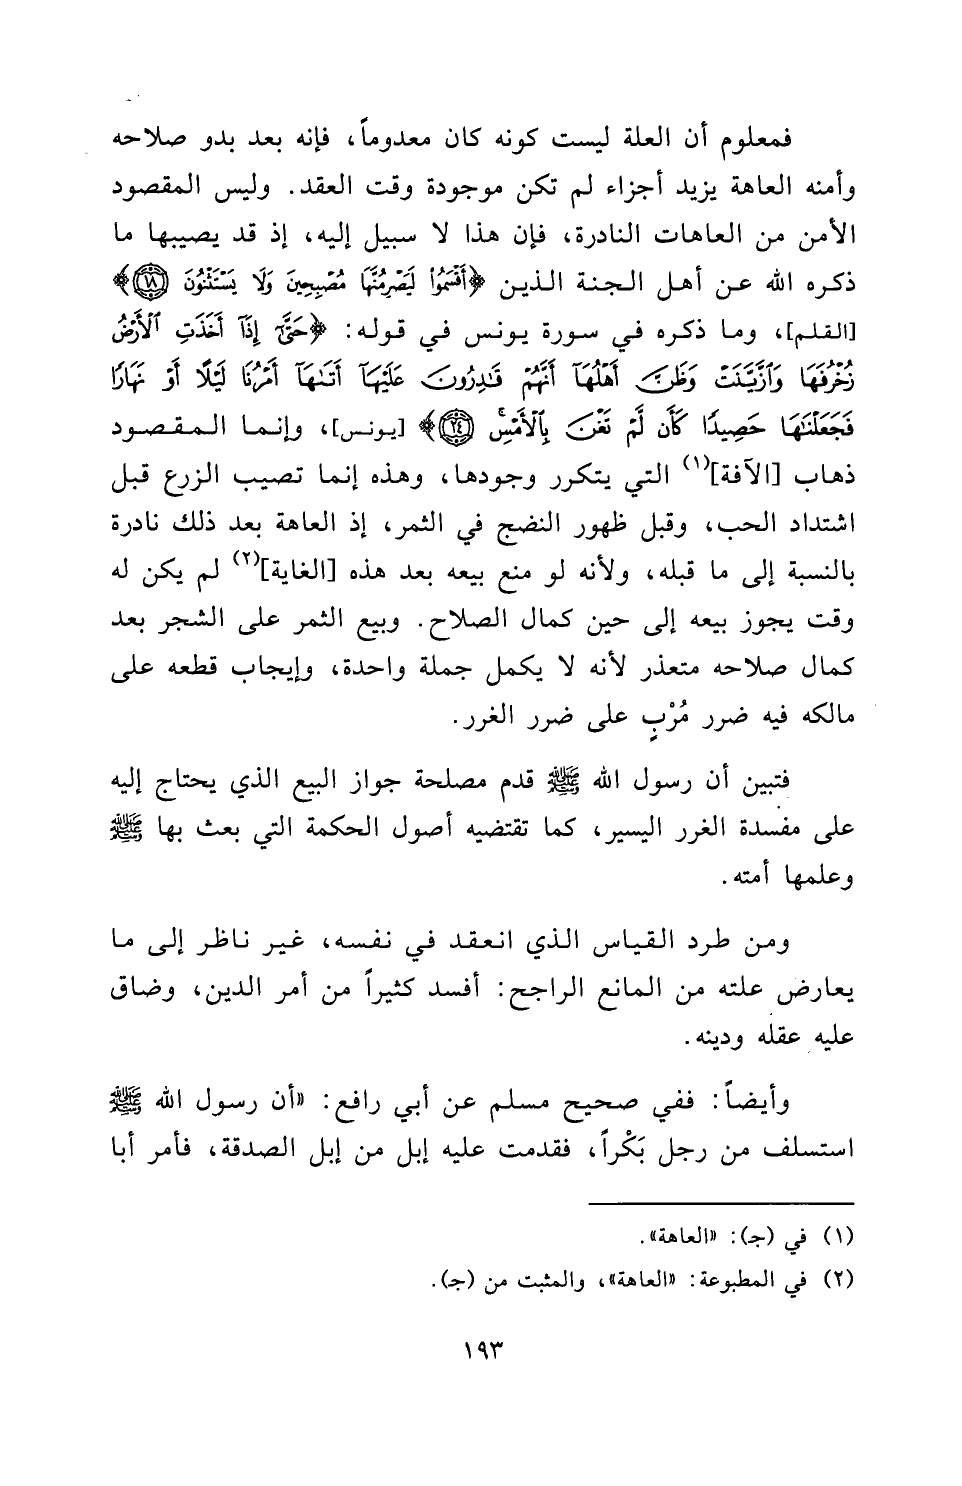 فمعلوم أن العلة ليست كونه كان معدوماً، فإنه بعد بدو صلاحه
وأمنه العاهة يزيد أجزاء لم تكن موجودة وقت العقد. وليس المقصود
الأمن من العاهات النادرة، فإن هذا لا سبيل إليه، إذ قد يصيبها ما
ذكره الله عن أهل الجنة الذين ﴿أَقْسَمُوا لَيَصْرِمُنَّهَا مُصْبِحِينَ وَلَا يَسْتَثْنُونَ ١٨﴾
[القلم]، وما ذكره في سورة يونس في قوله: ﴿حَتَّىٰ إِذَا أَخَذَتِ الْأَرْضُ
زُخْرُفَهَا وَازَّيَّنَتْ وَظَنَّ أَهْلُهَا أَنَّهُمْ قَادِرُونَ عَلَيْهَا أَتَاهَا أَمْرُنَا لَيْلًا أَوْ نَهَارًا
فَجَعَلْنَاهَا حَصِيدًا كَأَن لَّمْ تَغْنَ بِالْأَمْسِ ٢٤﴾ [يونس]، وإنما المقصود
ذهاب [الآفة](١) التي يتكرر وجودها، وهذه إنما تصيب الزرع قبل
اشتداد الحب، وقبل ظهور النضج في الثمر، إذ العاهة بعد ذلك نادرة
بالنسبة إلى ما قبله، ولأنه لو منع بيعه بعد هذه [الغاية](٢) لم يكن له
وقت يجوز بيعه إلى حين كمال الصلاح. وبيع الثمر على الشجر بعد
كمال صلاحه متعذر لأنه لا يكمل جملة واحدة، وإيجاب قطعه على
مالكه فيه ضرر مُرْبٍ على ضرر الغرر.
فتبين أن رسول الله ﷺ قدم مصلحة جواز البيع الذي يحتاج إليه
على مفسدة الغرر اليسير، كما تقتضيه أصول الحكمة التي بعث بها ﷺ
وعلمها أمته.
ومن طرد القياس الذي انعقد في نفسه، غير ناظر إلى ما
يعارض علته من المانع الراجح: أفسد كثيراً من أمر الدين، وضاق
عليه عقله ودينه.
وأيضاً: ففي صحيح مسلم عن أبي رافع: «أن رسول الله ﷺ
استسلف من رجل بَكْراً، فقدمت عليه إبل من إبل الصدقة، فأمر أبا
(١) في (جـ): «العاهة».
(٢) في المطبوعة: «العاهة»، والمثبت من (جـ).
١٩٣